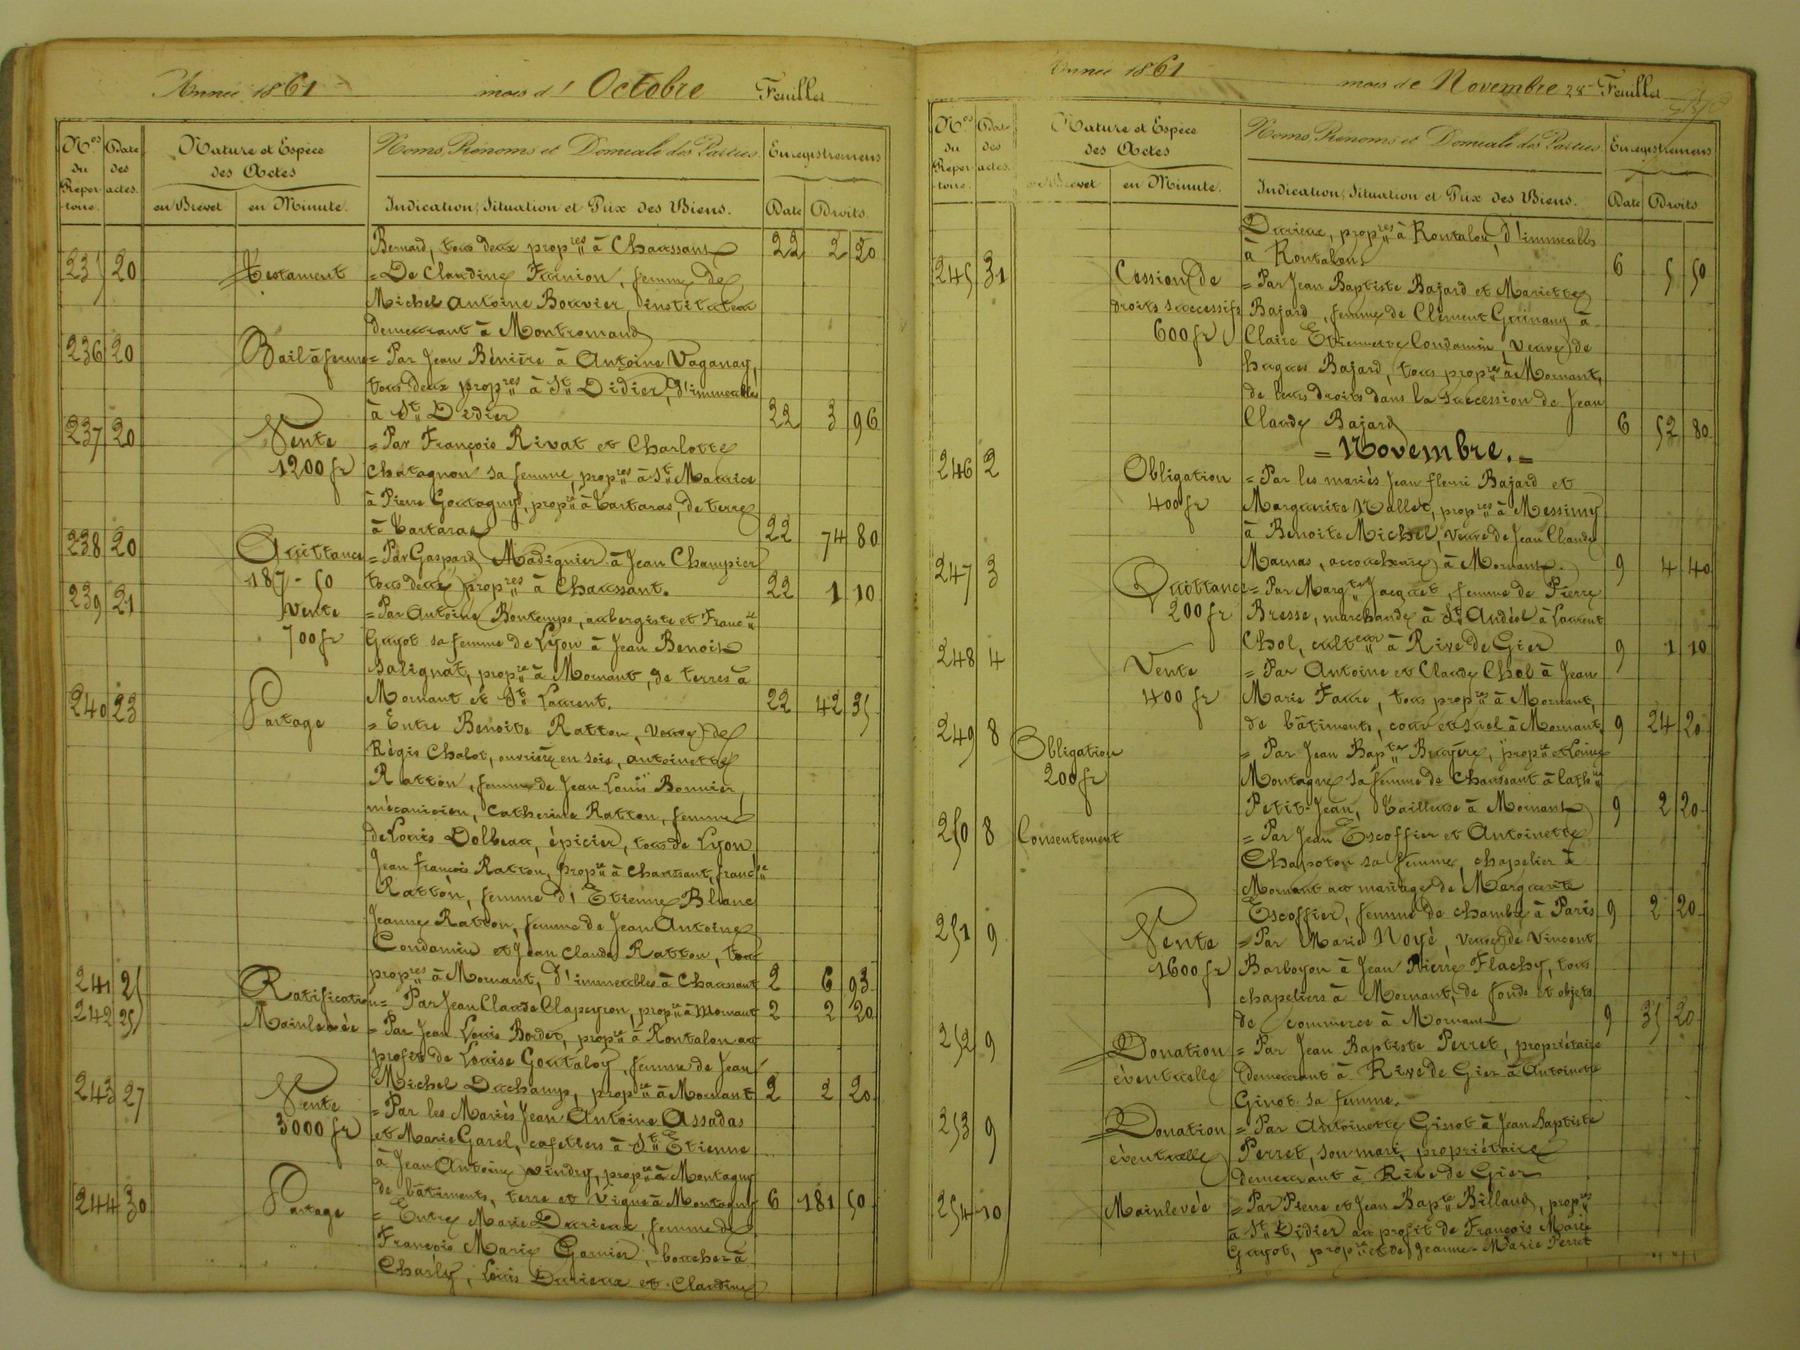 Année 1861 mois d' Octobre Feuillet
Nos du Réper-toire. Date des actes. Nature et Espèce des Actes Noms, Prénoms et Domicile des Parties Enregistremens
en Brevet en Minute. Indication, Situation et Prix des Biens. Date Droits.
Bernard, tous deux propres à Chaussant 22 2 20
235 20 Testament = De Claudine Farnion, femme de
Michel Antoine Bouvier, instituteur
demeurant à Montromand
236 20 Bail à ferme = Par Jean Bénière à Antoine Vaganay,
tous deux propres à St Didier, d'immeubles
à St Didier 22 3 96
237 20 Vente = Par François Rivat et Charlotte
1200 fr Chatagnon sa femme, propres à St Maurice
à Pierre Goutagny, propre à Tartaras, de terre
à Tartaras 22 74 80
238 20 Quittance = Par Gaspard Madignier à Jean Champier
187-50 tous deux propres à Chaussant. 22 1 10
239 21 Vente = Par Antoine Bontemps, aubergiste et Francse
700 fr Guyot sa femme de Lyon à Jean Benoit
Salignat, propre à Mornant, de terres à
Mornant et St Laurent. 22 42 35
240 23 Partage = Entre Benoite Ratton, veuve de
Régis Chalot, ouvrière en soie, antoinette
Ratton, femme de Jean Louis Bonnier,
mécanicien, Catherine Ratton, femme
de Louis Dolbeau, épicier, tous de Lyon
Jean françois Ratton, propre à Chaussant, francse
Ratton, femme d'Etienne Blanc
Jeanne Ratton, femme de Jean Antoine
Condamin et Jean Claude Ratton, tous
propres à Mornant, d'immeubles à Chaussant 2 6 93
241 25 Ratification = Par Jean Claude Clapeyron, propre à Mornant 2 2 20
242 25 Mainlevée = Par Jean Louis Bordet, propre à Rontalon au
profit de Louise Goutaloy, femme de Jean
Michel Duchamp, propre à Mornant 2 2 20
243 27 Vente = Par les Mariés Jean Antoine Assadas
3000 fr et Marie Garel, cafetiers à St Etienne
à Jean Antoine Vindry, propre à Montagny
de bâtiments, terre et vigne à Montagny 6 181 50
244 30 Partage = Entre Marie Durieux, femme de
François Marie Garnier, boucher à
Charly, Louis Durieux et Claudine
Année 1861 mois de Novembre 28e Feuillet
Nos du Réper-toire. Date des actes. Nature et Espèce des Actes Noms, Prénoms et Domicile des Parties Enregistremens
en Brevet en Minute. Indication, Situation et Prix des Biens. Date Droits.
Durieux, propres à Rontalon, d'immeubles
à Rontalon. 6 5 50
245 31 Cession de = Par Jean Baptiste Bajard et Mariette
droits successifs Bajard, femme de Clément Guinand à
600 fr Claire Etiennette Condamin, veuve de
hugues Bajard, tous propres à Mornant,
de leurs droits dans la succession de Jean
Claude Bajard 6 52 80
= Novembre. =
246 2 Obligation = Par les mariés Jean fleuri Bajard et
400 fr Marguerite Mallet, propres à Messimy
à Benoite Michel, veuve de Jean Claude
Marnas, accoucheuse à Mornant. 9 4 40
247 3 Quittance = Par Margte Jacquet, femme de Pierre
200 fr Bresse, marchande à St Andéol à Laurent
Chol, culteur à Rive de Gier 9 1 10
248 4 Vente = Par Antoine et Claude Chol à Jean
400 fr Marie Faure, tous propres à Mornant,
de bâtiments, cour et suel à Mornant 9 24 20
249 8 Obligation = Par Jean Bapte Bruyère, propre et Louise
200 fr Montagne sa femme de Chaussant à Cathne
Petit-Jean, tailleuse à Mornant 9 2 20
250 8 Consentement = Par Jean Escoffier et Antoinette
Chapoton sa femme, chapelier à
Mornant au mariage de Marguerite
Escoffier, femme de chambre à Paris 9 2 20
251 9 Vente = Par Marie Noyé, veuve de Vincent
1600 fr Barboyon à Jean Pierre Flachy, tous
chapeliers à Mornant, de fonds et objets
de commerce à Mornant 9 35 20
252 9 Donation = Par Jean Baptiste Perret, propriétaire
éventuelle demeurant à Rive de Gier à Antoinette
Ginot sa femme.
253 9 Donation = Par Antoinette Ginot à Jean Baptiste
éventuelle Perret, son mari, propriétaire
demeurant à Rive de Gier
254 10 Mainlevée = Par Pierre et Jean Bapte Billaud, propres
à St Didier au profit de François Marie
Guyot, propre et de Jeanne-Marie Perret